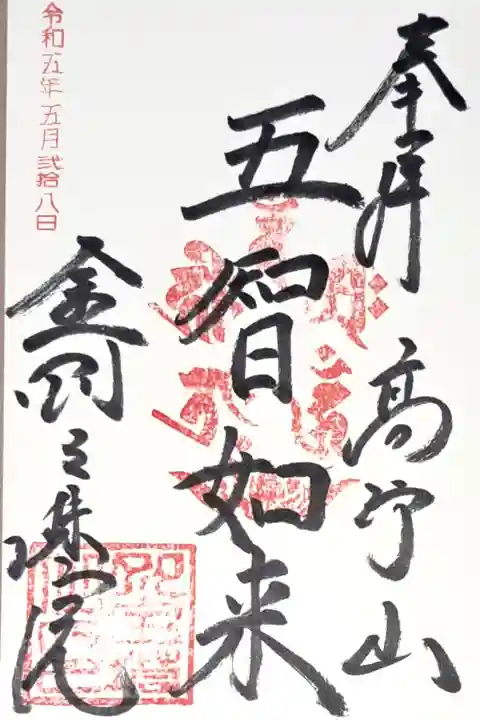 奉拝 高宁山
五智如来
金剛三珠院
令和五年五月弐拾八日